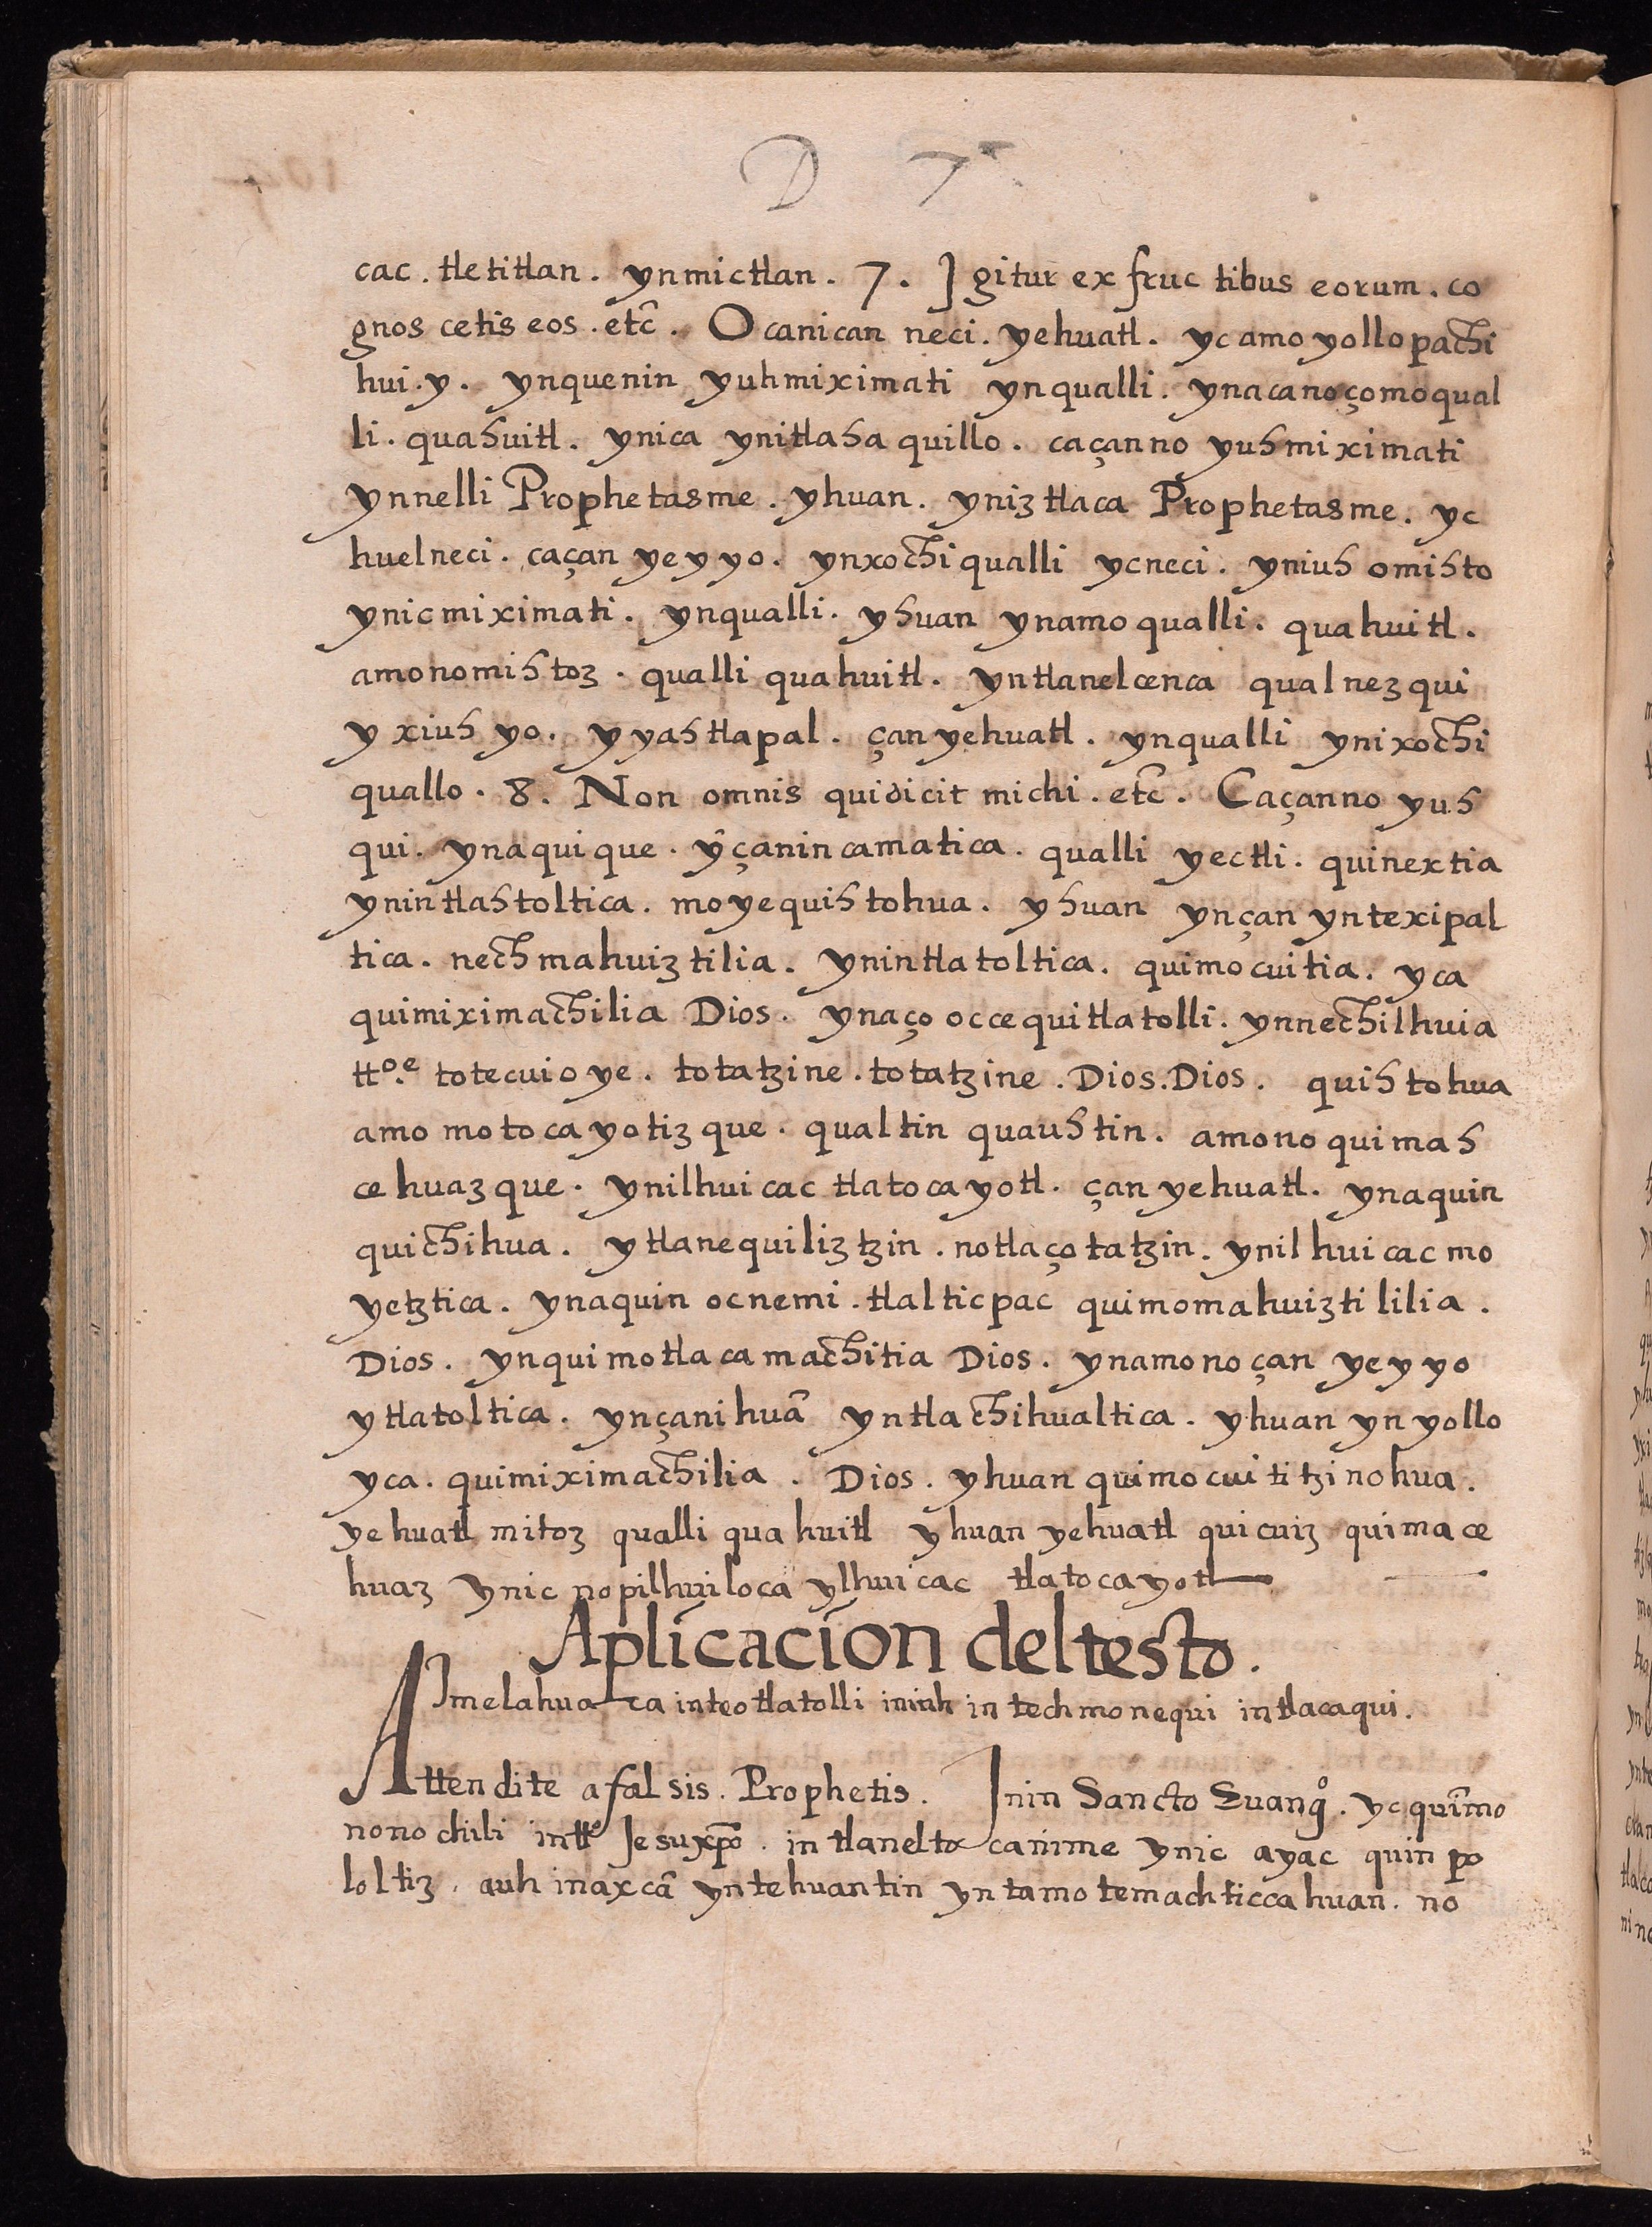 D 7
cac. tletitlan. ynmictlan. 7. Igitur ex fructibus eorum. co
gnoscetis eos. etc̃. Ocanican neci. yehuatl. yc amo yollo pachi
hui. y. ynquenin yuhmiximati ynqualli. ynacanoçomoqual
li. quahuitl. ynica ynitlahaquillo. caçanno yuhmiximati
ynnelli Prophetasme. yhuan. yniztlaca Prophetasme. yc
huelneci. caçan yeyyo. ynxochiqualli ycneci. yniuh omihto
ynicmiximati. ynqualli. yhuan ynamo qualli. quahuitl.
amonomihtoz. qualli quahuitl. yntlanelcenca qualnezqui
yxiuhyo. yyahtlapal. çan yehuatl. ynqualli ynixochi
quallo. 8. Non omnis qui dicit michi. etc̃. Caçanno yuh
qui. ynaquique. ỹçanincamatica. qualli yectli. quinextia
ynintlahtoltica. moyequihtohua. yhuan ynçan yntexipal
tica. nechmahuiztilia. ynintlatoltica. quimocuitia. yca
quimiximachilia Dios. ynaço occequitlatolli. ynnechilhuia
tto.e totecuioye. totatzine. totatzine. Dios. Dios. quihtohua
amo motocayotizque. qualtin quauhtin. amono quimah
cehuazque. ynilhuicac tlatocayotl. çan yehuatl. ynaquin
quichihua. ytlanequiliztzin. notlaçotatzin. ynilhuicac mo
yetztica. ynaquin ocnemi. tlalticpac quimomahuiztililia.
Dios. ynquimotlacamachitia Dios. ynamono çan yeyyo
ytlatoltica. ynçanihuã yntlachihualtica. yhuan ynyollo
yca. quimiximachilia. Dios. yhuan quimocuititzinohua.
yehuatl mitoz qualli quahuitl yhuan yehuatl quicuiz quimace
huaz ynic nopilhuiloca ylhuicac tlatocayotl
Aplicacion deltesto.
Imelahuaca inteotlatolli iniuh in techmonequi intlacaqui.
Attendite a falsis. Prophetis. Inin Sancto Euangº. yc quĩmo
nonochili inttº Jesuxpõ. in tlaneltocanime ynic ayac quinpo
loltiz. auh inaxcã yntehuantin yntamotemachticcahuan. no